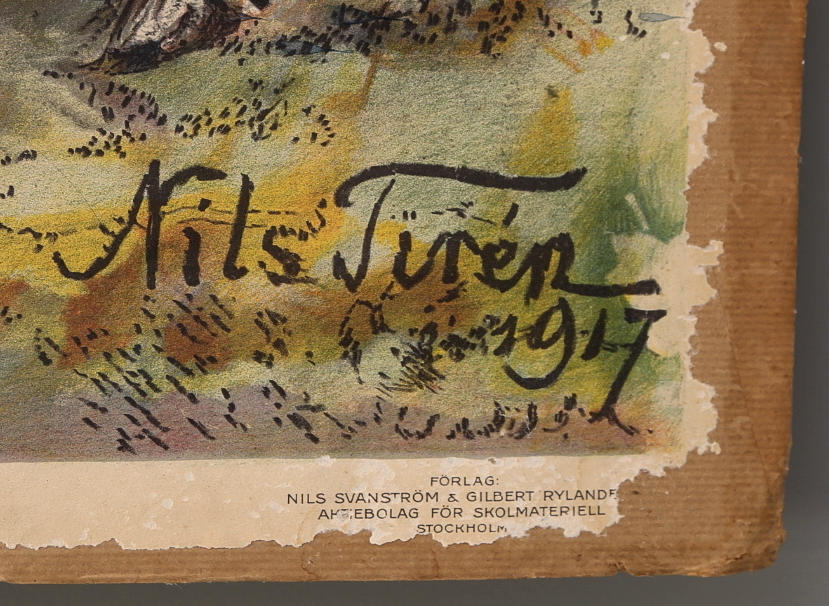 Nils Tirén
1917
FÖRLAG:
NILS SVANSTRÖM & GILBERT RYLANDE
AKTIEBOLAG FÖR SKOLMATERIELL
STOCKHOLM